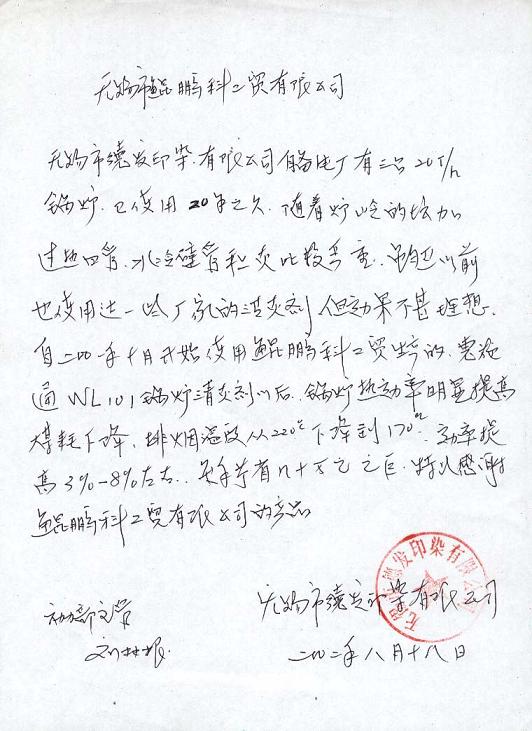 无锡市鲲鹏科工贸有限公司
无锡市德发印染有限公司自备电厂有三只20T/h
锅炉. 已使用20年之久. 随着炉龄的增加
过热四管. 水冷壁管积灰比较严重. 虽然以前
也使用过一些厂家的清灰剂 但动果不甚理想.
自二00一年十月开始使用鲲鹏科工贸生产的. 惠
通 WL101 锅炉清灰剂以后. 锅炉热动率明显提高
煤耗下降. 排烟温度从220℃下降到170℃. 动率提
高3%-8%左右. 节有几十万之巨. 特以感谢
鲲鹏科工贸有限公司的产品
无锡市德发印染有限公司
二00二年八月十八日
发印染有限公司